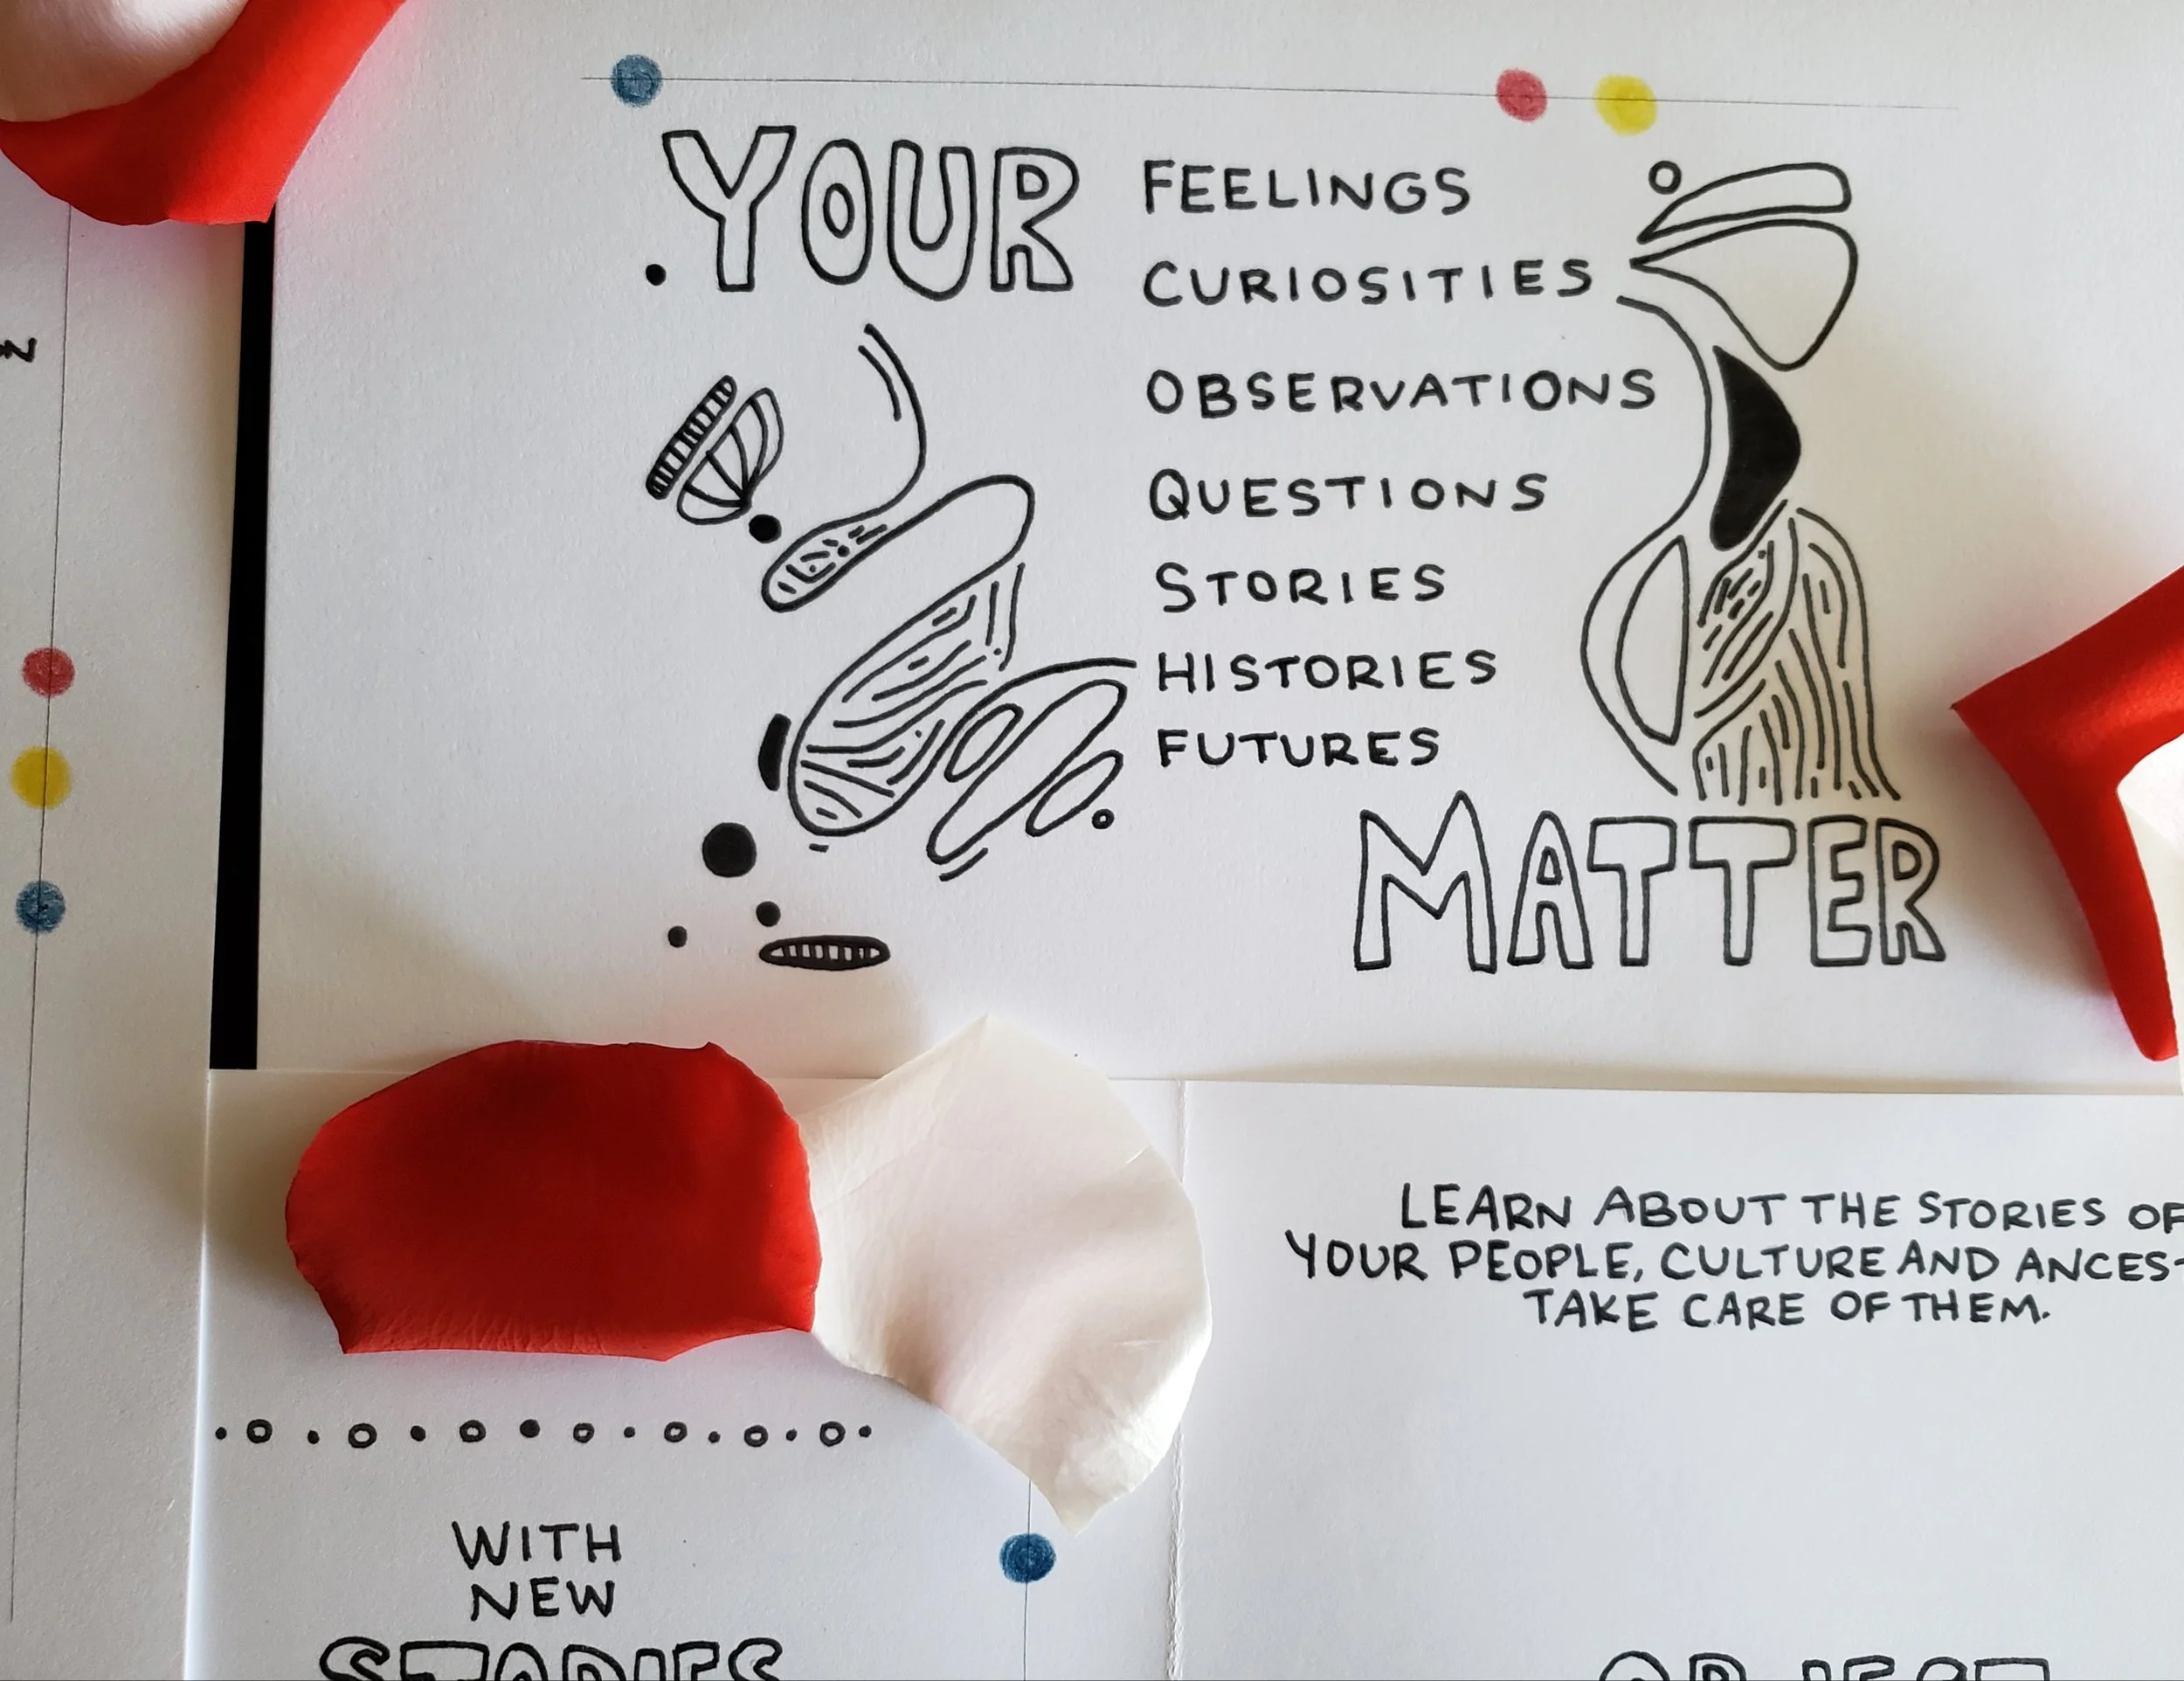 YOUR
FEELINGS
CURIOSITIES
OBSERVATIONS
QUESTIONS
STORIES
HISTORIES
FUTURES
MATTER
LEARN ABOUT THE STORIES OF
YOUR PEOPLE, CULTURE AND ANCES-
TAKE CARE OF THEM.
WITH
NEW
STORIES